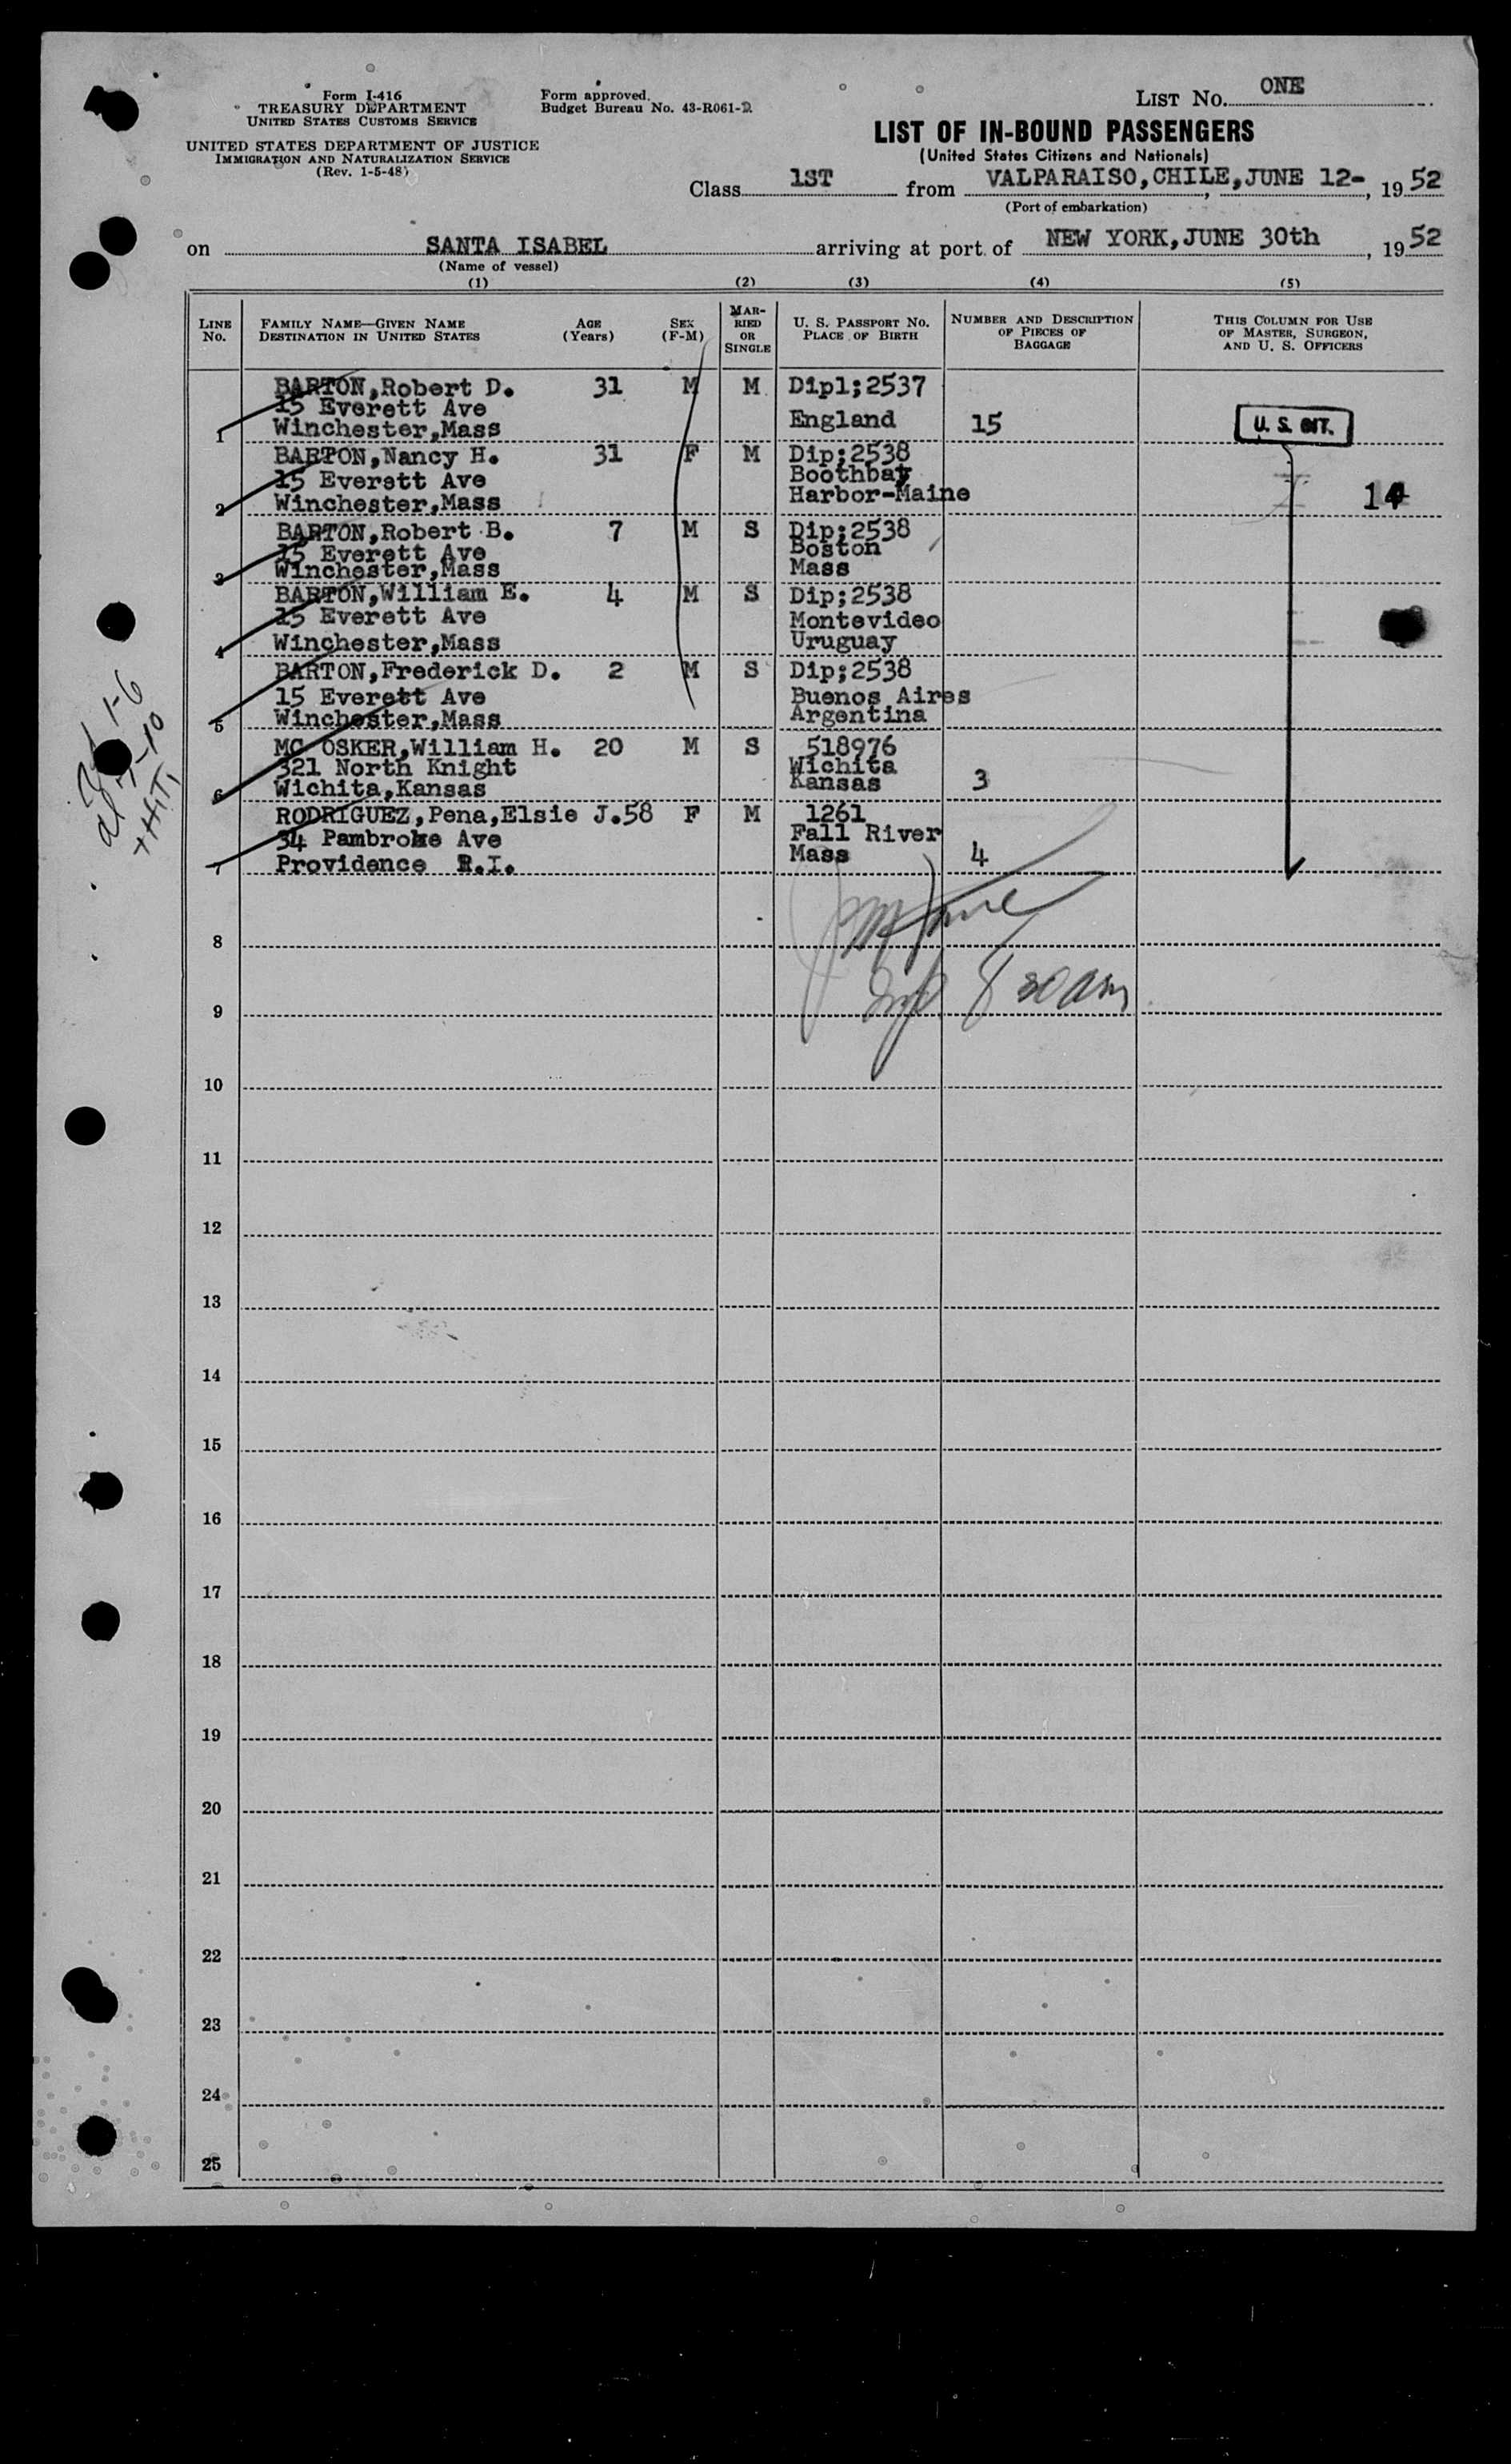 Form I-416
TREASURY DEPARTMENT
UNITED STATES CUSTOMS SERVICE
UNITED STATES DEPARTMENT OF JUSTICE
IMMIGRATION AND NATURALIZATION SERVICE
(Rev. 1-5-48)
Form approved.
Budget Bureau No. 43-R061-2
LIST NO. ONE
LIST OF IN-BOUND PASSENGERS
(United States Citizens and Nationals)
Class 1ST from VALPARAISO,CHILE,JUNE 12-, 1952
(Port of embarkation)
on SANTA ISABEL arriving at port of NEW YORK,JUNE 30th, 1952
(Name of vessel)
(1) (2) (3) (4) (5)
LINE No. FAMILY NAME—GIVEN NAME DESTINATION IN UNITED STATES AGE (Years) SEX (F-M) MARRIED OR SINGLE U. S. PASSPORT NO. PLACE OF BIRTH NUMBER AND DESCRIPTION OF PIECES OF BAGGAGE THIS COLUMN FOR USE OF MASTER, SURGEON, AND U. S. OFFICERS
BARTON,Robert D. 31 M M Dipl;2537
15 Everett Ave
1 Winchester,Mass England 15 U. S. CIT.
BARTON,Nancy H. 31 F M Dip;2538
15 Everett Ave Boothbay
2 Winchester,Mass Harbor-Maine 14
BARTON,Robert B. 7 M S Dip;2538
15 Everett Ave Boston
3 Winchester,Mass Mass
BARTON,William E. 4 M S Dip;2538
15 Everett Ave Montevideo
4 Winchester,Mass Uruguay
BARTON,Frederick D. 2 M S Dip;2538
15 Everett Ave Buenos Aires
5 Winchester,Mass Argentina
MC OSKER,William H. 20 M S 518976
321 North Knight Wichita
6 Wichita,Kansas Kansas 3
RODRIGUEZ,Pena,Elsie J.58 F M 1261
34 Pambroke Ave Fall River
7 Providence R.I. Mass 4
8
9
8 30 am
10
11
12
13
14
15
16
17
18
19
20
21
22
23
24
25
1-6